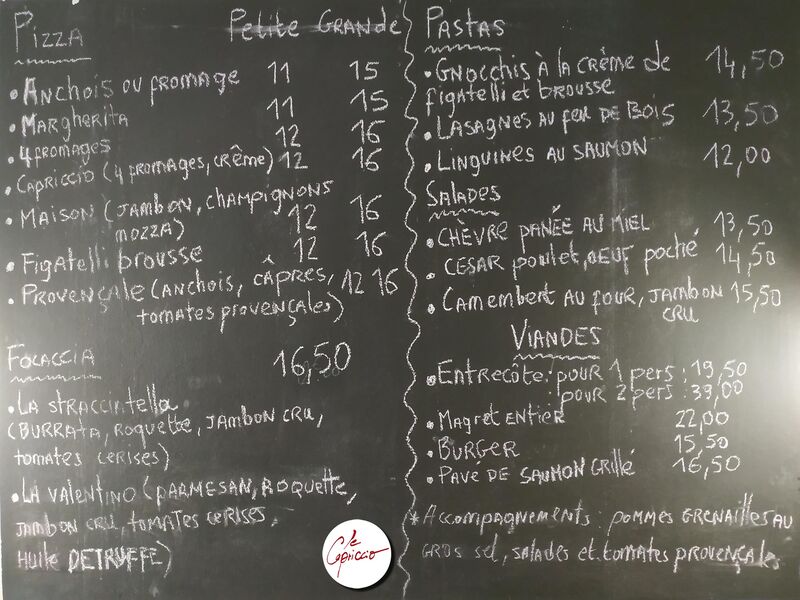 Pizza Petite Grande
• Anchois ou fromage 11 15
• Margherita 11 15
• 4 fromages 12 16
• Capriccio (4 fromages, crême) 12 16
• Maison (jambon, champignons
mozza) 12 16
• Figatelli brousse 12 16
• Provençale (anchois, câpres, 12 16
tomates provençales)
Focaccia 16,50
• La straccintella
(Burrata, roquette, jambon cru,
tomates cerises)
• La valentino (parmesan, roquette,
jambon cru, tomates cerises,
huile DETRUFFE)
le Capriccio
Pastas
• Gnocchis à la crême de 14,50
figatelli et brousse
• Lasagnes au feu de bois 13,50
• Linguines au saumon 12,00
Salades
• Chèvre panée au miel 13,50
• César poulet, oeuf poché 14,50
• Camembert au four, jambon 15,50
cru
Viandes
• Entrecôte: pour 1 pers : 19,50
pour 2 pers : 39,00
• Magret entier 22,00
• Burger 15,50
• Pavé de saumon grillé 16,50
* Accompagnements : pommes grenailles au
gros sel, salades et tomates provençales